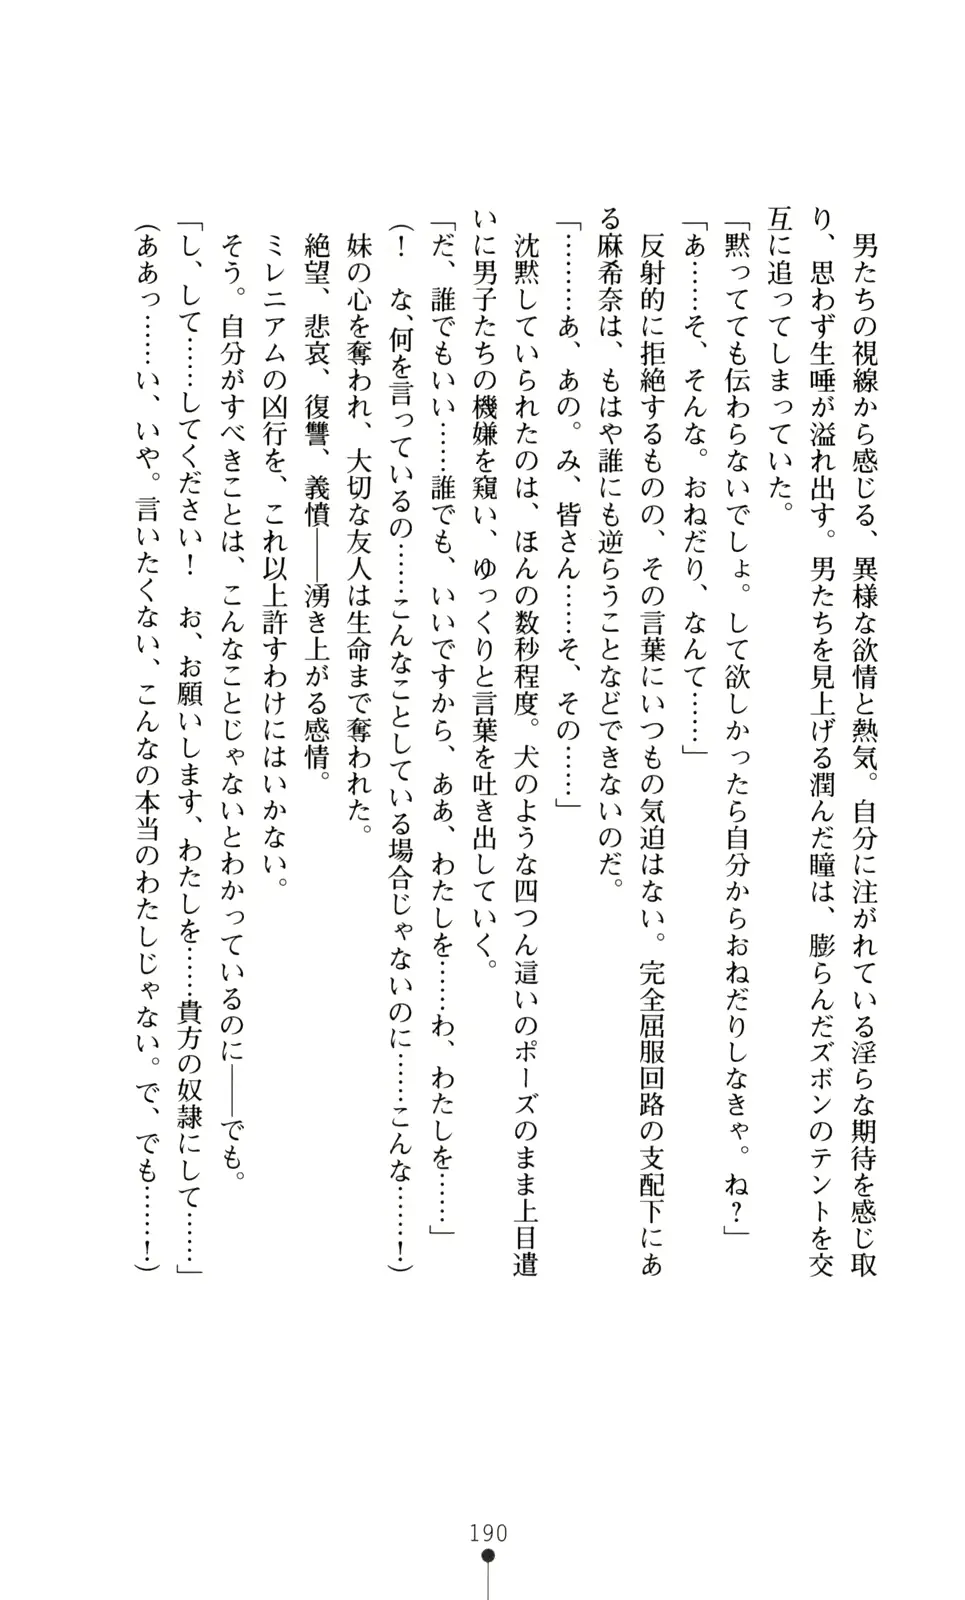 男たちの視線から感じる、異様な欲情と熱気。自分に注がれている淫らな期待を感じ取
り、思わず生唾が溢れ出す。男たちを見上げる潤んだ瞳は、膨らんだズボンのテントを交
互に追ってしまっていた。
「黙ってても伝わらないでしょ。して欲しかったら自分からおねだりしなきゃ。ね?」
「あ……そ、そんな。おねだり、なんて……」
反射的に拒絶するものの、その言葉にいつもの気迫はない。完全屈服回路の支配下にあ
る麻希奈は、もはや誰にも逆らうことなどできないのだ。
「………あ、あの。み、皆さん……そ、その……」
沈黙していられたのは、ほんの数秒程度。犬のような四つん這いのポーズのまま上目遣
いに男子たちの機嫌を窺い、ゆっくりと言葉を吐き出していく。
「だ、誰でもいい……誰でも、いいですから、ああ、わたしを……わ、わたしを……」
(! な、何を言っているの……こんなことしている場合じゃないのに……こんな……!)
妹の心を奪われ、大切な友人は生命まで奪われた。
絶望、悲哀、復讐、義憤――湧き上がる感情。
ミレニアムの凶行を、これ以上許すわけにはいかない。
そう。自分がすべきことは、こんなことじゃないとわかっているのに――でも。
「し、して……してください! お、お願いします、わたしを……貴方の奴隷にして……」
(ああっ……い、いや。言いたくない、こんなの本当のわたしじゃない。で、でも……!)
190